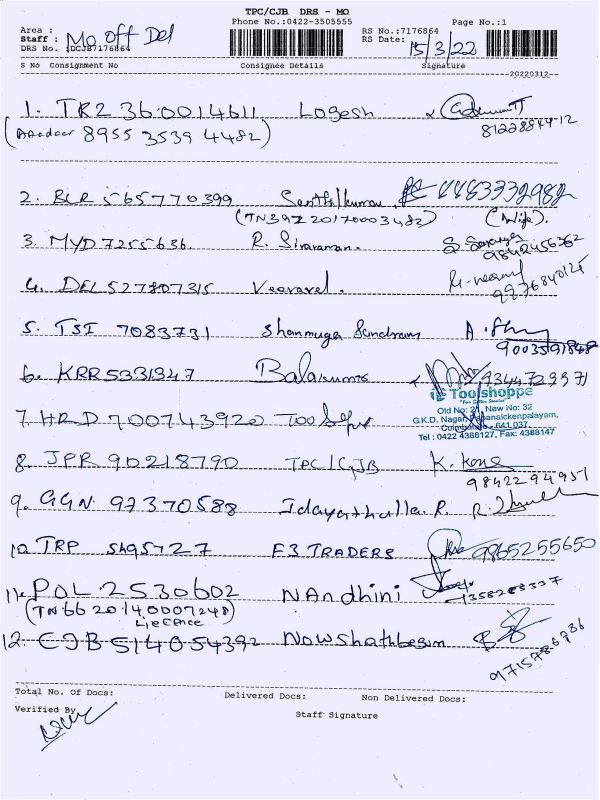 TPC/CJB DRS - MO
Area : Phone No.:0422-3505555 Page No.:1
Staff : Mo off Del RS No.:7176864
DRS No. :DCJB7176864 RS Date: 15/3/22
S No Consignment No Consignee Details Signature
20220312
1. TRZ 360014611 Logesh
8122884412
8955 3539 4482)
2. BLR 565770399 Senthilkumar 4483332982
(TN39Z 20170003482) (Wife).
3. MYD 7255636. R. Sivaraman.
9842456262
4. DEL 527807315 Veeravel.
9976840125
5. TSI 7083731 Shanmuga Sundram
9003591848
6. KRR 5331347 Balakumar 9344729971
Toolshoppe
7. HRD 700743920
Old No: New No: 32
G.K.D. Nagar, Pappanaickenpalayam,
Coimbatore 641 037.
Tel : 0422 4388127, Fax: 4388147
8. JPR 90218790 TPC/CJB
9842294951
9. GGN 97370588 Idayathulla R.
10. TRP 5495727 F3 TRADERS 9865255650
11. POL 2530602 NAndhini
7358203337
(TN66 20140007248)
12. CJB 514054392 Nowshathbegum
9715786786
Total No. of Docs: Delivered Docs: Non Delivered Docs:
Verified By
Staff Signature